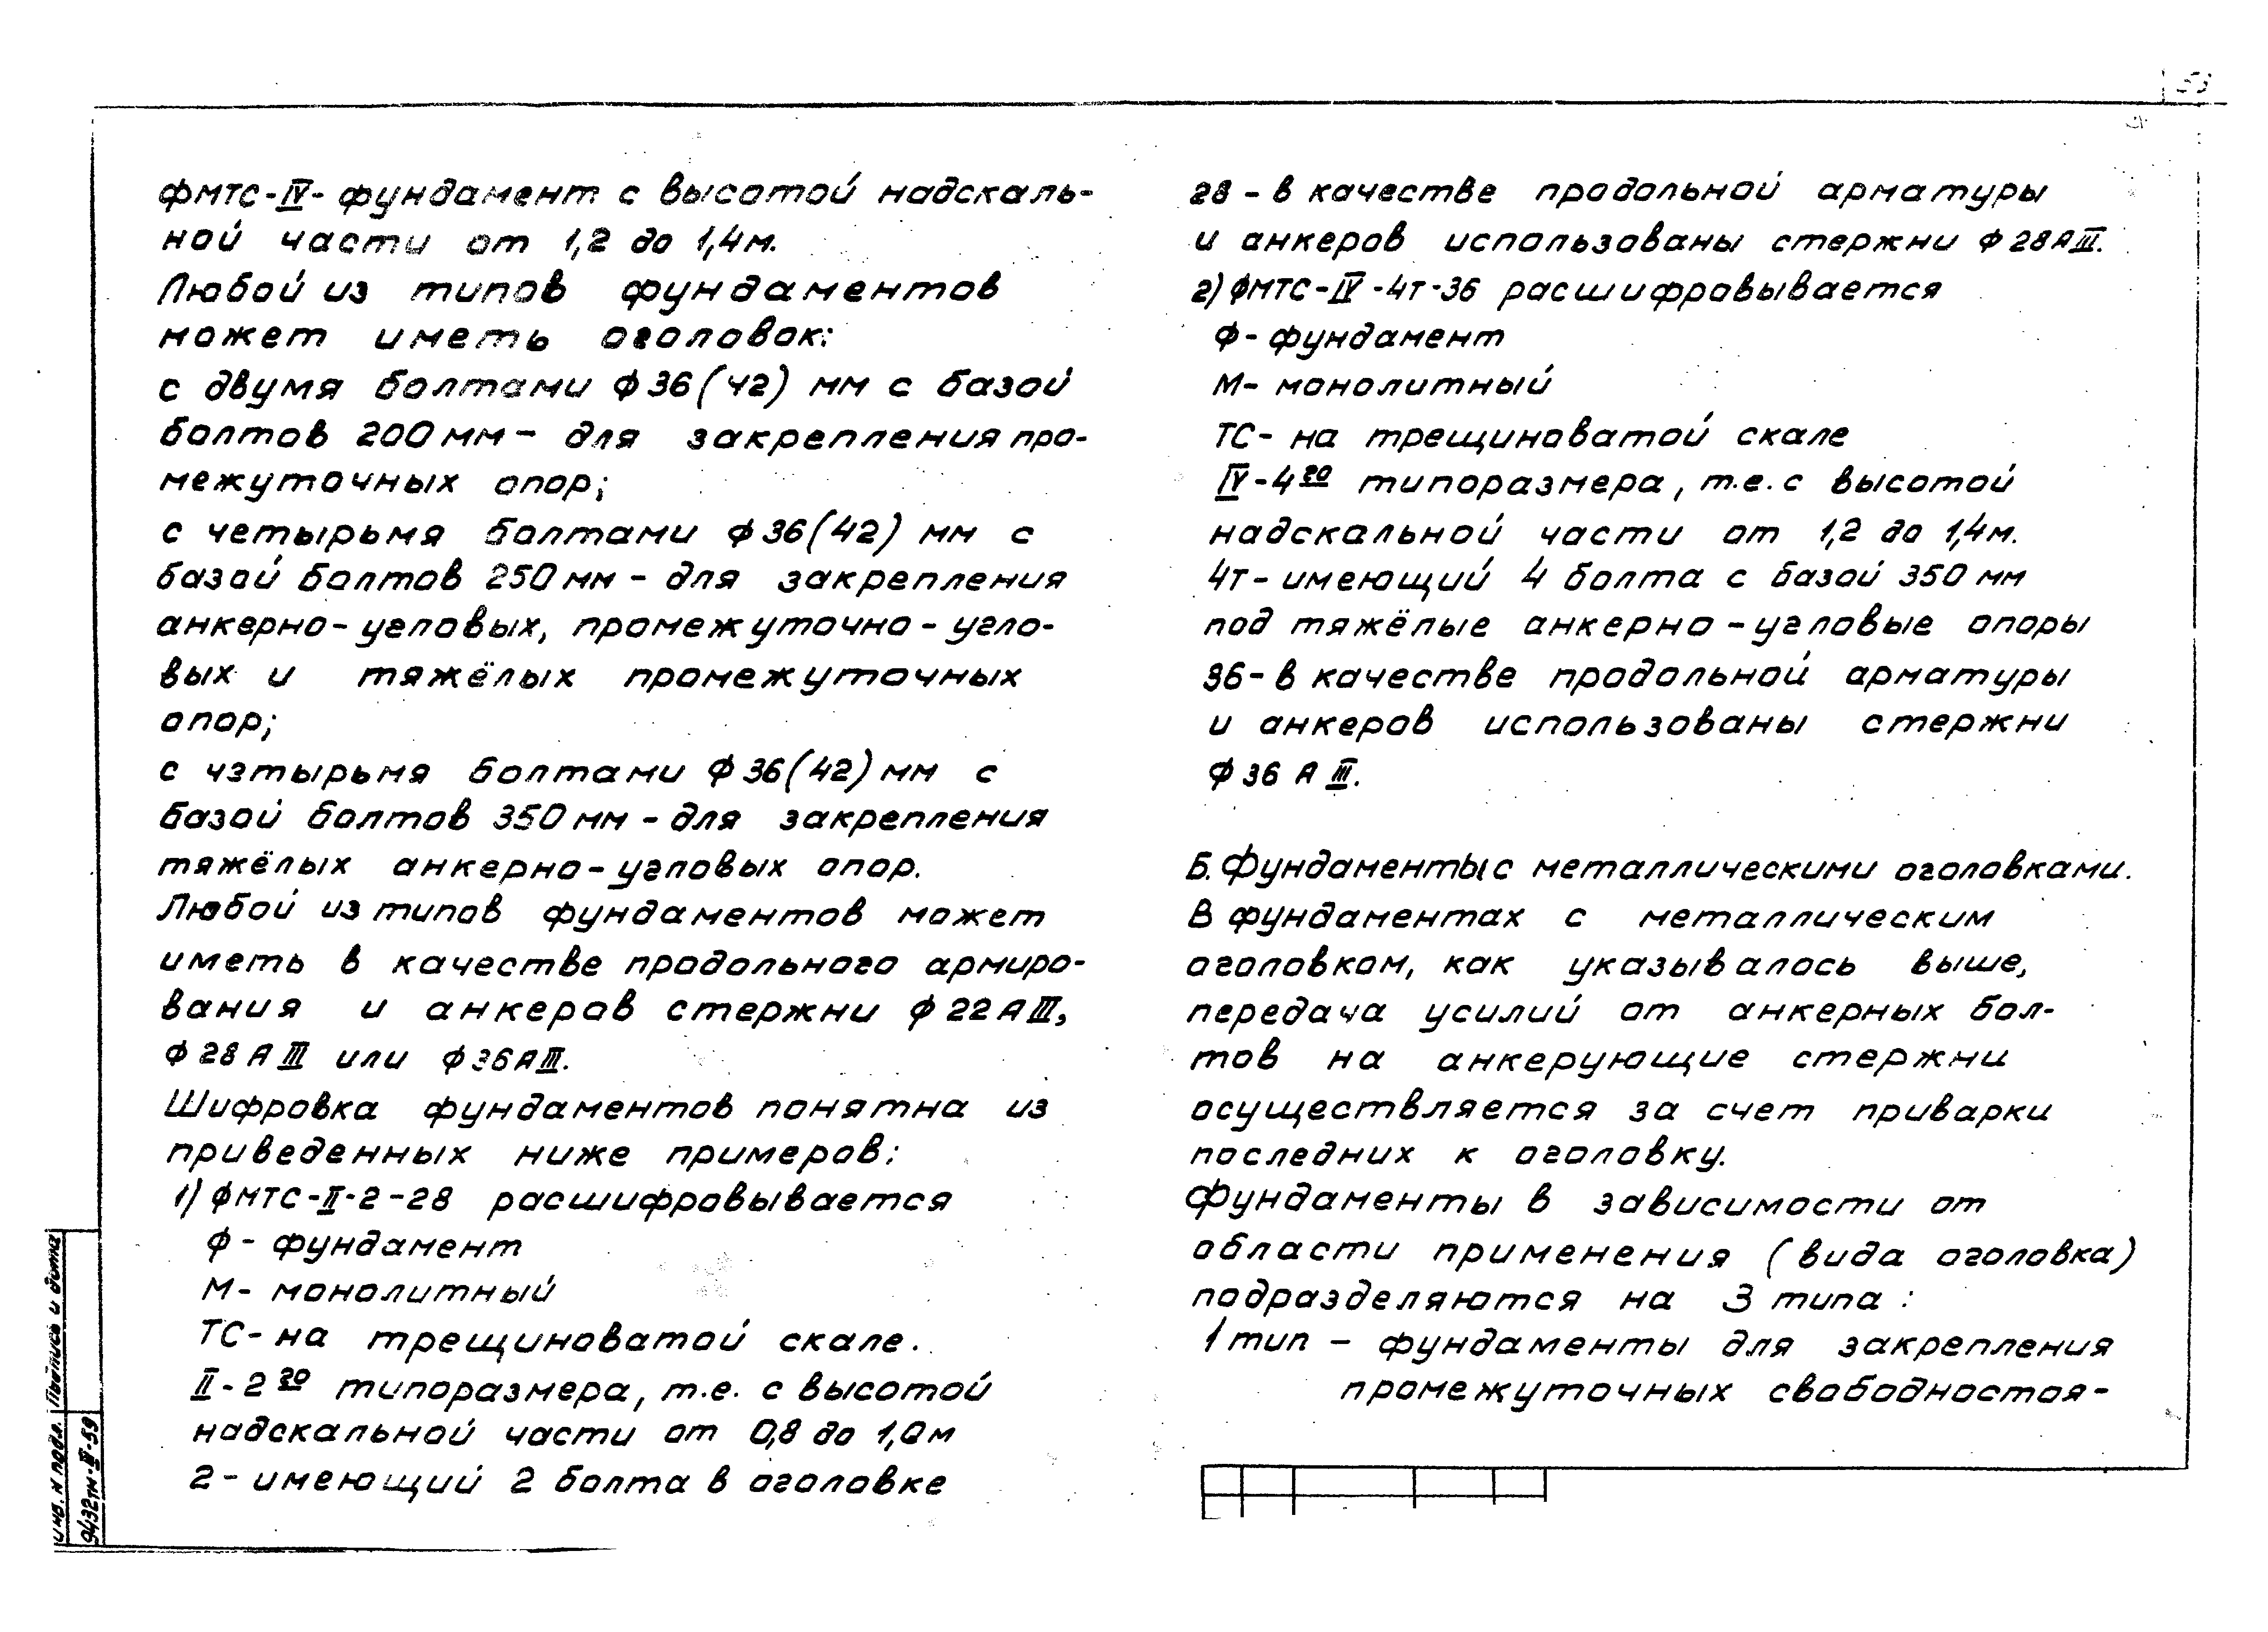 53
ФМТС-IV- фундамент с высотой надскаль-
ной части от 1,2 до 1,4м.
Любой из типов фундаментов
может иметь оголовок:
с двумя болтами ф36(42) мм с базой
болтов 200мм- для закрепления про-
межуточных опор;
с четырьмя болтами ф36(42) мм с
базой болтов 250мм - для закрепления
анкерно-угловых, промежуточно-угло-
вых и тяжёлых промежуточных
опор;
с четырьмя болтами ф36(42)мм с
базой болтов 350мм - для закрепления
тяжёлых анкерно-угловых опор.
Любой из типов фундаментов может
иметь в качестве продольного армиро-
вания и анкеров стержни ф22АIII,
ф28АIII или ф36АIII.
Шифровка фундаментов понятна из
приведенных ниже примеров:
1) ФМТС-II-2-28 расшифровывается
Ф - фундамент
М- монолитный
ТС- на трещиноватой скале.
II-2го типоразмера, т.е. с высотой
надскальной части от 0,8 до 1,0м
2-имеющий 2 болта в оголовке
28 - в качестве продольной арматуры
и анкеров использованы стержни ф28АIII.
2) ФМТС-IV-4т-36 расшифровывается
Ф- фундамент
М- монолитный
ТС- на трещиноватой скале
IV-4го типоразмера, т.е. с высотой
надскальной части от 1,2 до 1,4м.
4т-имеющий 4 болта с базой 350мм
под тяжёлые анкерно-угловые опоры
36- в качестве продольной арматуры
и анкеров использованы стержни
ф36АIII.
Б. Фундаменты с металлическими оголовками.
В фундаментах с металлическим
оголовком, как указывалось выше,
передача усилий от анкерных бол-
тов на анкерующие стержни
осуществляется за счет приварки
последних к оголовку.
Фундаменты в зависимости от
области применения (вида оголовка)
подразделяются на 3 типа:
1 тип - фундаменты для закрепления
промежуточных свободностоя-
Инв. N подл. Подпись и дата
9432тм-III-59